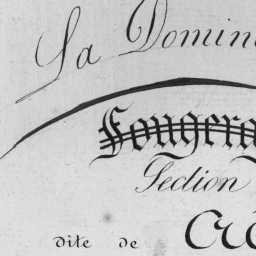 La Domin
Fougera
Section
dite de Cr